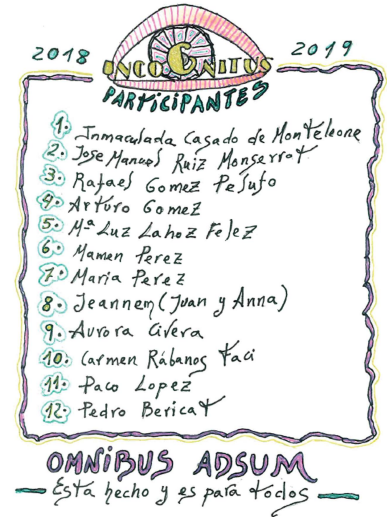 2018 INCOGNITUS 2019
PARTICIPANTES
1. Inmaculada Casado de Monteleone
2. Jose Manuel Ruiz Monserrat
3. Rafael Gomez Pesuto
4. Arturo Gomez
5. Mª Luz Lahoz Felez
6. Mamen Perez
7. Maria Perez
8. Jeannem (Juan y Anna)
9. Aurora Civera
10. Carmen Rábanos Faci
11. Paco Lopez
12. Pedro Bericat
OMNIBUS ADSUM
Esta hecho y es para todos